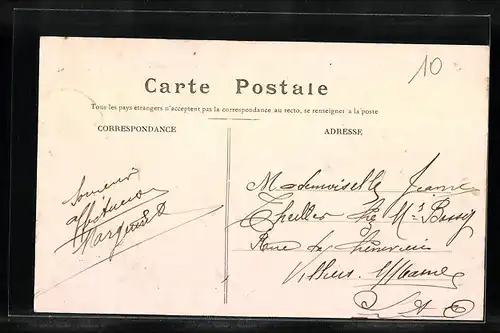 10
Carte Postale
Tous les pays étrangers n'acceptent pas la correspondance au recto, se renseigner à la poste
CORRESPONDANCE
ADRESSE
Souvenir
Mademoiselle Jeanne
Theillez Chez Mr Bessy
Rue des
Villiers s/ Marne
S & O